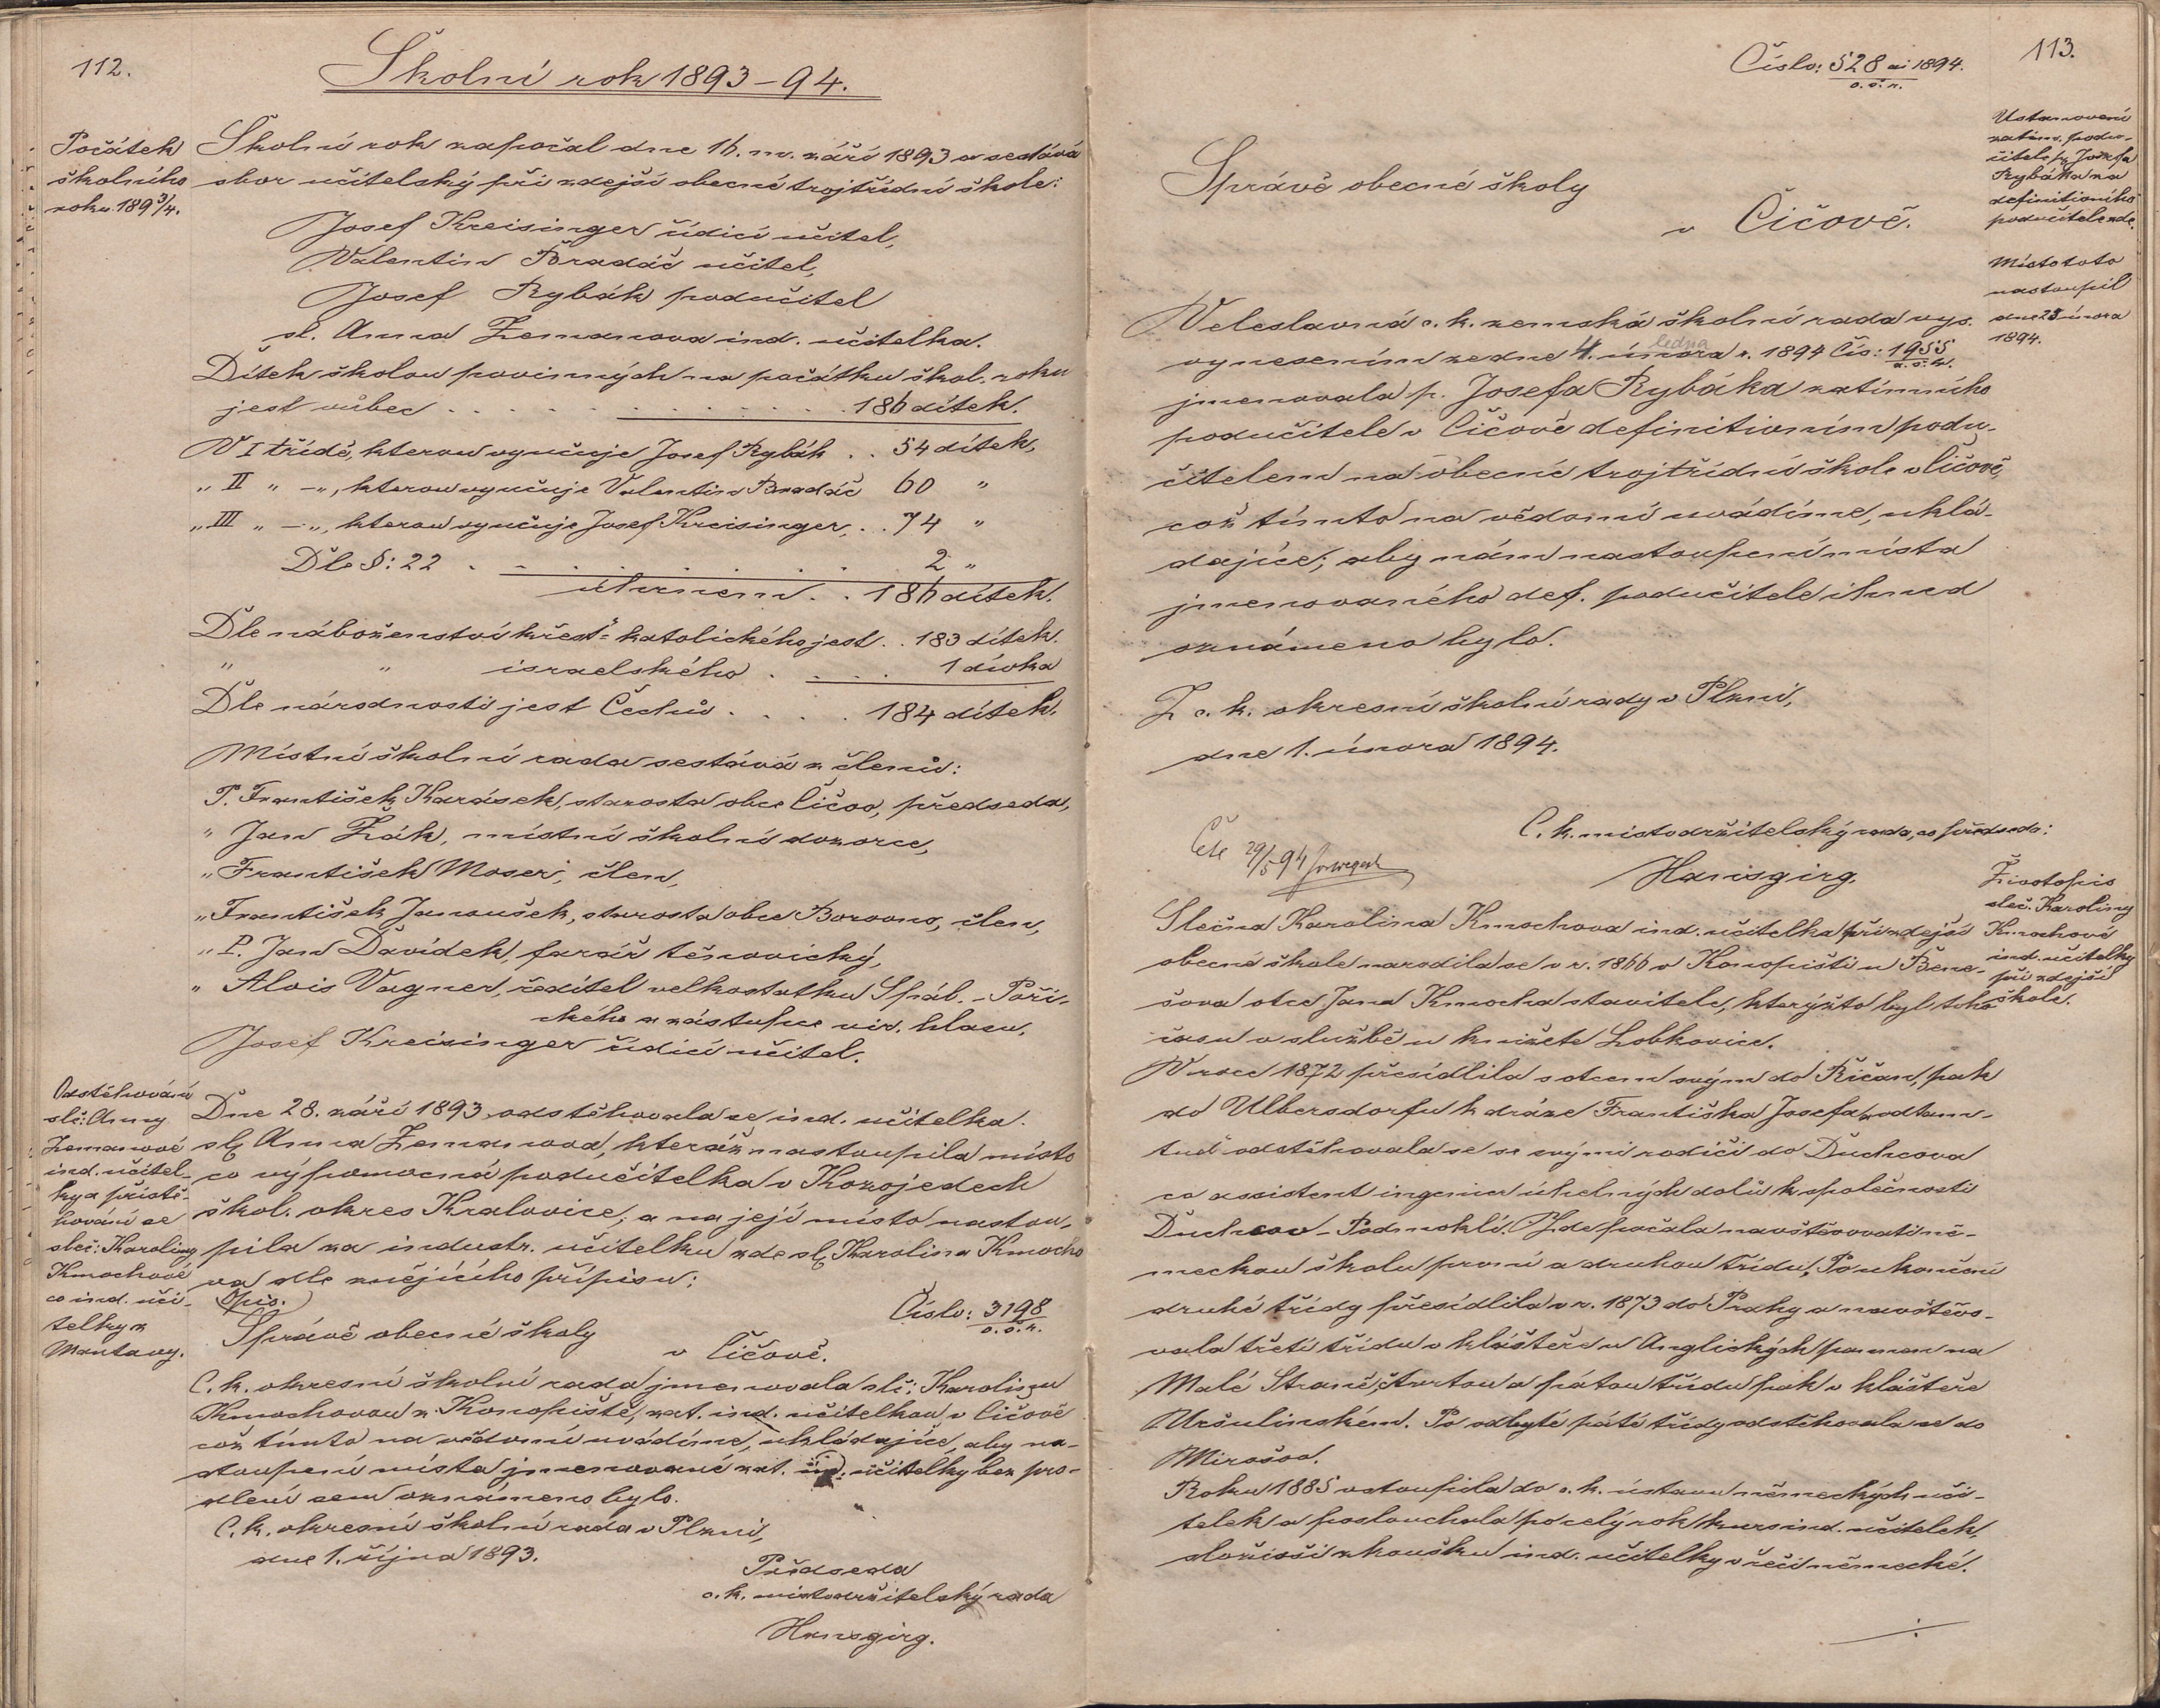 112.
Školní rok 1893–94.
Počátek
školního
roku 189 3/4.
Školní rok započal dne 16. m. září 1893 a sestává
sbor učitelský při zdejší obecné trojtřídní škole:
Josef Kreisinger řídící učitel,
Valentin Bradáč učitel,
Josef Rybák podučitel
sl. Anna Zemanova ind. učitelka.
Dítek školou povinných na počátku škol. roku
jest vůbec . . . . . . . . . . . 186 dítek.
V I třídě, kterou vyučuje Josef Rybák . . 54 dítek,
„ II „ –„, kterou vyučuje Valentin Bradáč 60 „
„ III „ –„, kterou vyučuje Josef Kreisinger, . . 74 „
Dle §: 22 . . . . . . . 2 „
úhrnem . . 186 dítek.
Dle náboženství křest.= katolického jest . . 183 dítek.
„ „ israelského . . . . 1 dívka
Dle národnosti jest Čechů . . . . 184 dítek.
Místní školní rada sestává z členů:
P. František Karásek, starosta obce Čičov, předseda,
„ Jan Žák, místní školní dozorce,
„ František Moser, člen,
„ František Janoušek, starosta obce Borovno, člen,
„ P. Jan Davídek, farář těnovický,
„ Alois Vagner, ředitel velkostatku Spál. – Poří-
ckého a zástupce vir. hlasu,
Josef Kreisinger řídící učitel.
Odstěhování
slč: Anny
Zemanové
ind. učitel-
ky a přistě-
hování se
sleč: Karoliny
Kmochové
co ind. uči-
telky z
Mantavy.
Dne 28. září 1893 odstěhovala se ind. učitelka
slč. Anna Zemanova, kteráž nastoupila místo
co výpomocná podučitelka v Kozojedech
škol. okres Kralovice, a na její místo nastou-
pila za industr. učitelku zde slč. Karolina Kmocho
va dle znějícího přípisu:
Opis.
Číslo: 3198
o. š. r.
Správě obecné školy
v Čičově.
C. k. okresní školní rada jmenovala slč: Karolinu
Kmochovou z Konopiště, zat. ind. učitelkou v Čičově
což tímto na vědomí uvádíme, ukládajíce, aby na-
stoupení místa jmenované zat. in. učitelky bez pro-
dlení sem oznámeno bylo.
C. k. okresní školní rada v Plzni,
dne 1. října 1893.
Předseda
c. k. místodržitelský rada
Hansgirg.
113.
Číslo: 528 ai 1894.
o. š. r.
Ustanovení
zatím. podu-
čitele p. Josefa
Rybáka za
definitivního
podučitele zde.
Místo toto
nastoupil
dne 23 února
1894.
Správě obecné školy
v Čičově.
Veleslavná c. k. zemská školní rada vys.
vynesením ze dne 4. února r. 1894 Čís: 1955
ledna
z. š. r.
jmenovala p. Josefa Rybáka zatímního
podučitele v Čičově definitivním podu-
čitelem na obecné trojtřídní škole v Čičově,
což tímto na vědomí uvádíme, uklá-
dajíce, aby nám nastoupení místa
jmenovaného def. podučitele ihned
oznámeno bylo.
Z c. k. okresní školní rady v Plzni,
dne 1. února 1894.
C. k. místodržitelský rada, co předseda:
Hansgirg.
Čete 29/5 94
Životopis
sleč. Karoliny
Kmochové
ind. učitelky
při zdejší
škole.
Slečna Karolina Kmochova ind. učitelka při zdejší
obecné škole narodila se v r. 1866 v Konopišti u Bene-
šova otce Jana Kmocha stavitele, kterýžto byl toho
času v službě u knížete Lobkovice.
V roce 1872 přesídlila s otcem svým do Říčan, pak
do Ulbersdorfu k dráze Františka Josefa, odtam-
tud odstěhovala se se svými rodiči do Duchcova
co assistent ingenier úhelných dolů k společnosti
Duchcov – Podmoklí. Zde počala navštěvovati ně-
meckou školu první a druhou třídu. Po ukončení
druhé třídy přesídlila v r. 1873 do Prahy a navštěvo-
vala třetí třídu v klášteře u Anglických pannen na
Malé Straně, čtvrtou a pátou třídu pak v klášteře
Uršulinském. Po odbyté páté třídy odstěhovala se do
Mirošov.
Roku 1885 vstoupila do c. k. ústavu německých uči-
telek a poslouchala po celý rok kurs ind. učitelek,
složivši zkoušku ind. učitelky v řeči německé.